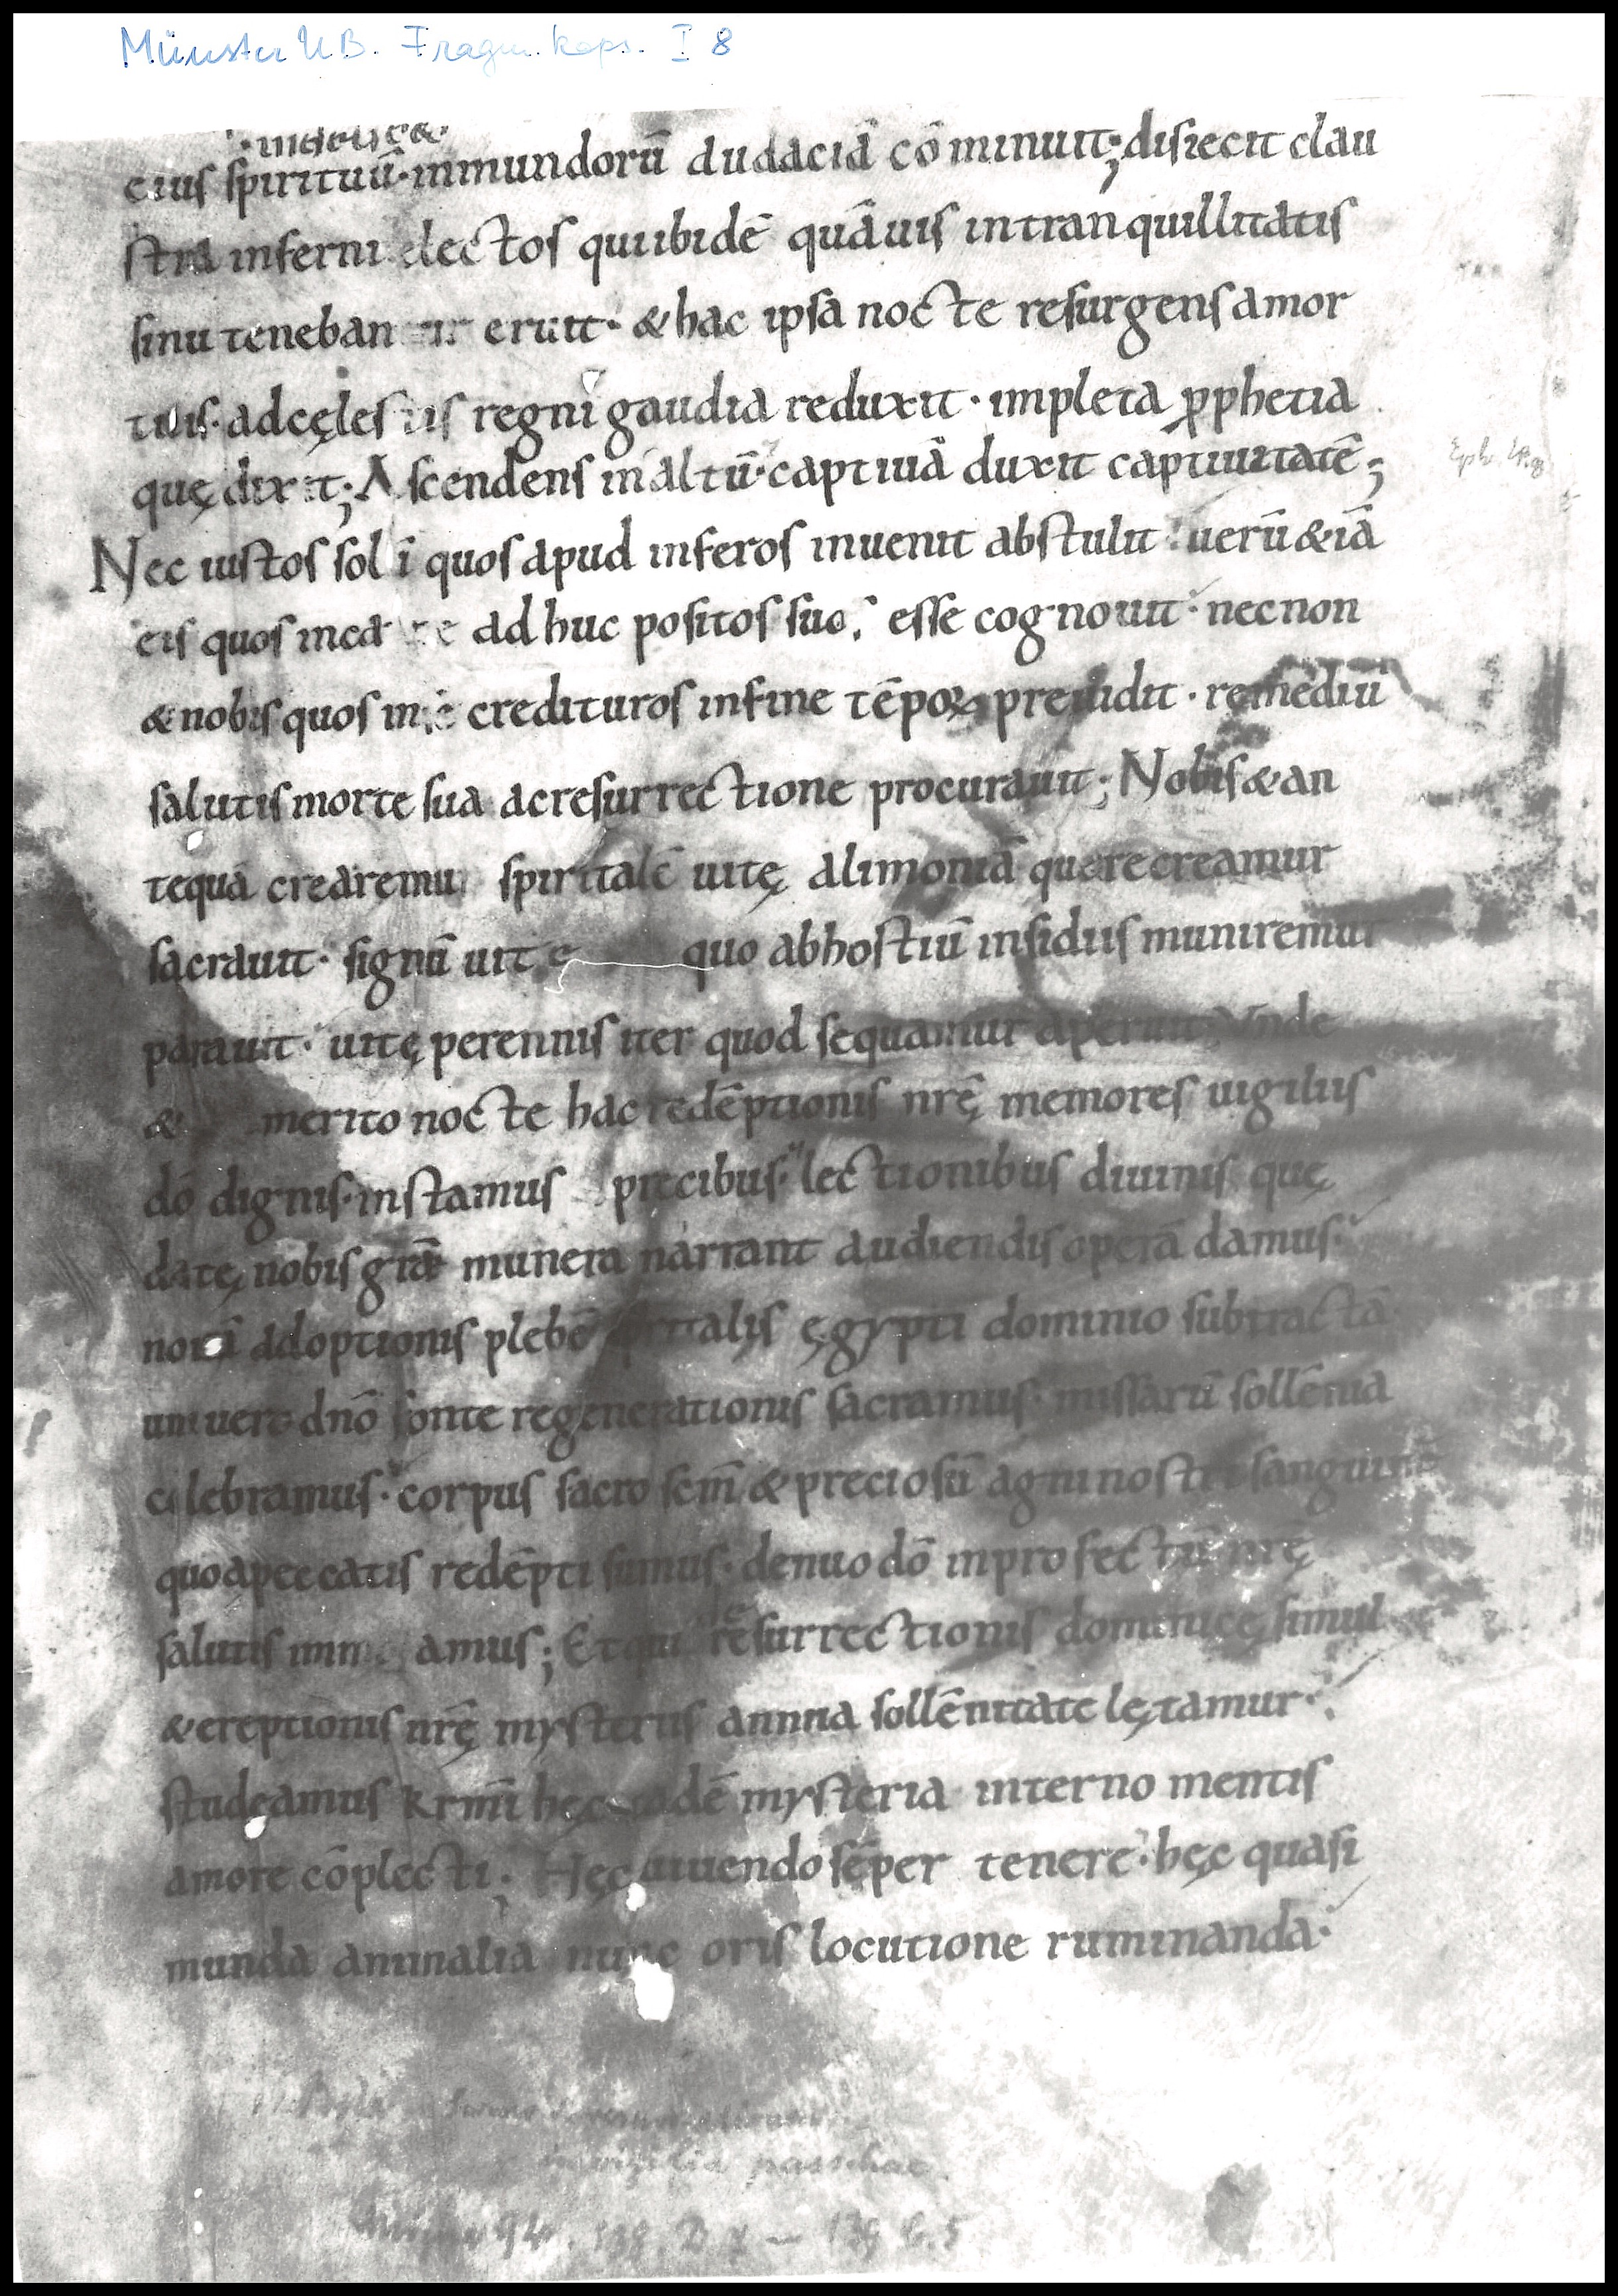 Münster UB. Fragm. kaps. I 8
eius spirituū· inmundorū audaciā cōminuit; disiecit clau
stra inferni electos qui ibidē quāuis in tranquillitatis
sinu tenebantur eruit· & hac ipsa nocte resurgens amor
tuis· ad cęlestis regni gaudia reduxit· impleta ꝓphetia
quę dixit; Ascendens in altū· captiuā duxit captiuitatē;
Nec iustos solū quos apud inferos inuenit abstulit· uerū & iā
eis quos in carne adhuc positos suos esse cognouit· necnon
& nobis quos in se credituros in fine tēpoꝝ preuidit· remediū
salutis morte sua ac resurrectione procurauit; Nobis & an
tequā crearemur spiritalē uitę alimoniā qua recreamur
sacrauit· signū uitę quo ab hostiū insidiis muniremur
parauit· uitę perennis iter quod sequamur aperuit; Vnde
& merito nocte hac redēptionis nrę̄ memores uigiliis
dō dignis· instamus precibus· lectionibus diuinis quę
datę nobis grā̄ę munera narrant audiendis operā damus·
nouā adoptionis plebē spiritalis ęgypti dominio subtractā
uni uero dnō fonte regenerationis sacramus· missarū sollēnia
celebramus· corpus sacro scm̄ & preciosū agni nostri sanguinē
quo a peccatis redēpti sumus· denuo dō in profectū nrę̄
salutis immolamus; Et qui de resurrectionis dominicę simul
& ereptionis nrę̄ mysteriis annua sollēnitate lętamur·
studeamus krm̄i hęc eadē mysteria interno mentis
amore cōplecti; Hęc uiuendo sēper tenere· hęc quasi
munda animalia nunc oris locutione ruminanda·
in vigilia paschae.